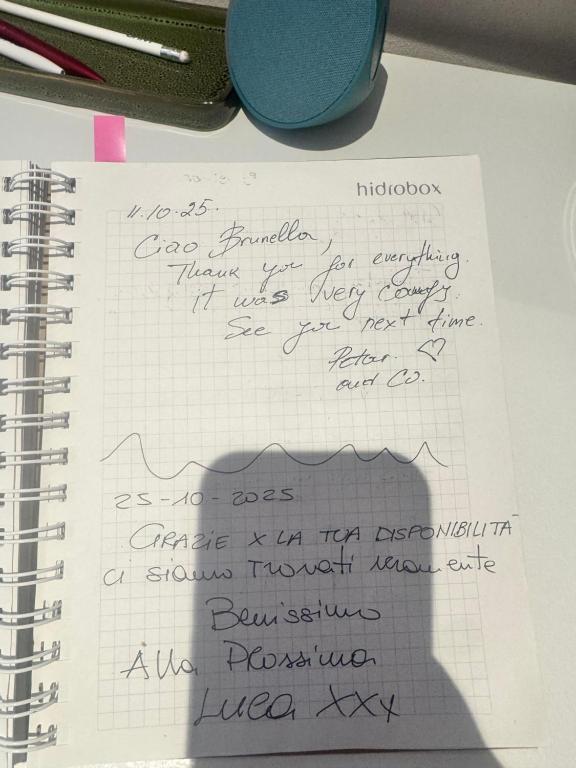 hidrobox
11.10.25.
Ciao Brunella,
Thank you for everything.
it was very comfy.
See you next time.
Petar. ♡
and Co.
25-10-2025
GRAZIE X LA TUA DISPONIBILITÀ
ci siamo Trovati veramente
Benissimo
Alla Prossima
Luca XXX